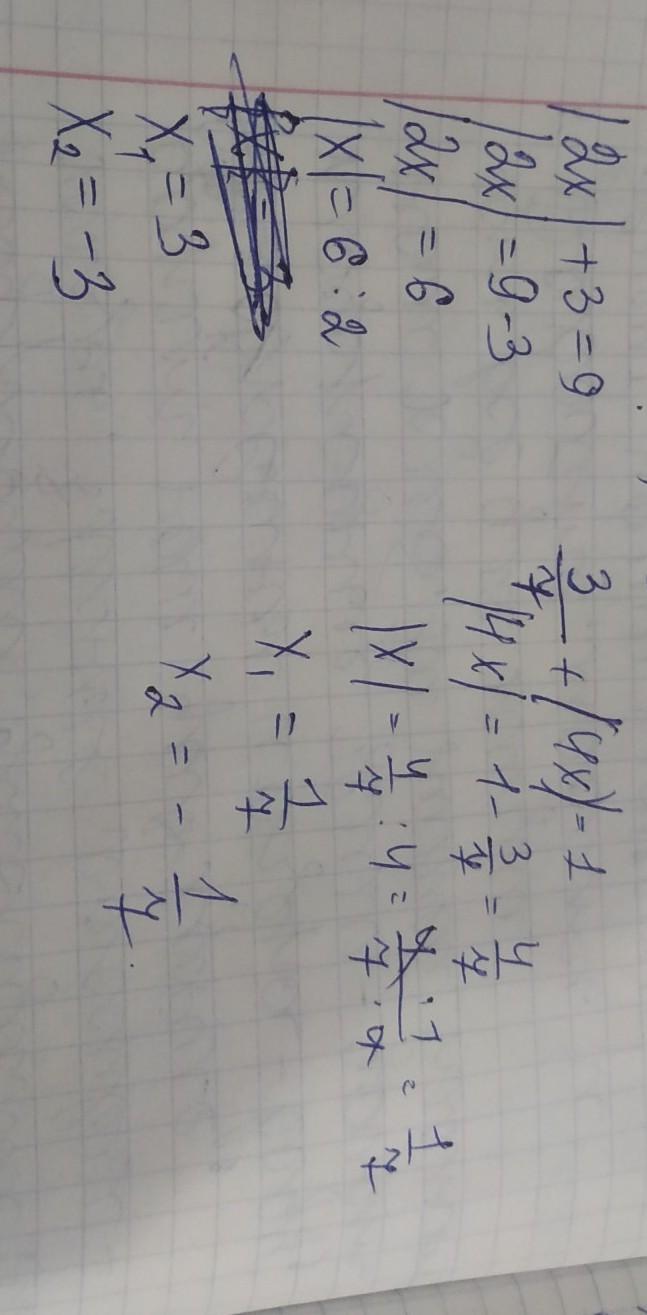 |2x| + 3 = 9
|2x| = 9 - 3
|2x| = 6
|x| = 6 : 2
x₁ = 3
x₂ = -3
3/7 + |4x| = 1
|4x| = 1 - 3/7 = 4/7
|x| = 4/7 : 4 = 4·1/7·4 = 1/7
x₁ = 1/7
x₂ = - 1/7.